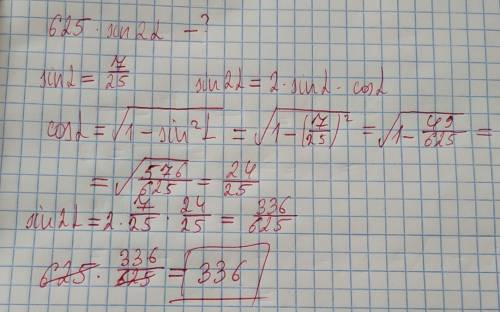 625 · sin2α — ?
sinα = 7/25 sin2α = 2 · sinα · cosα
cosα = √(1 − sin²α) = √(1 − (7/25)²) = √(1 − 49/625) =
= √(576/625) = 24/25
sin2α = 2 · 7/25 · 24/25 = 336/625
625 · 336/625 = 336